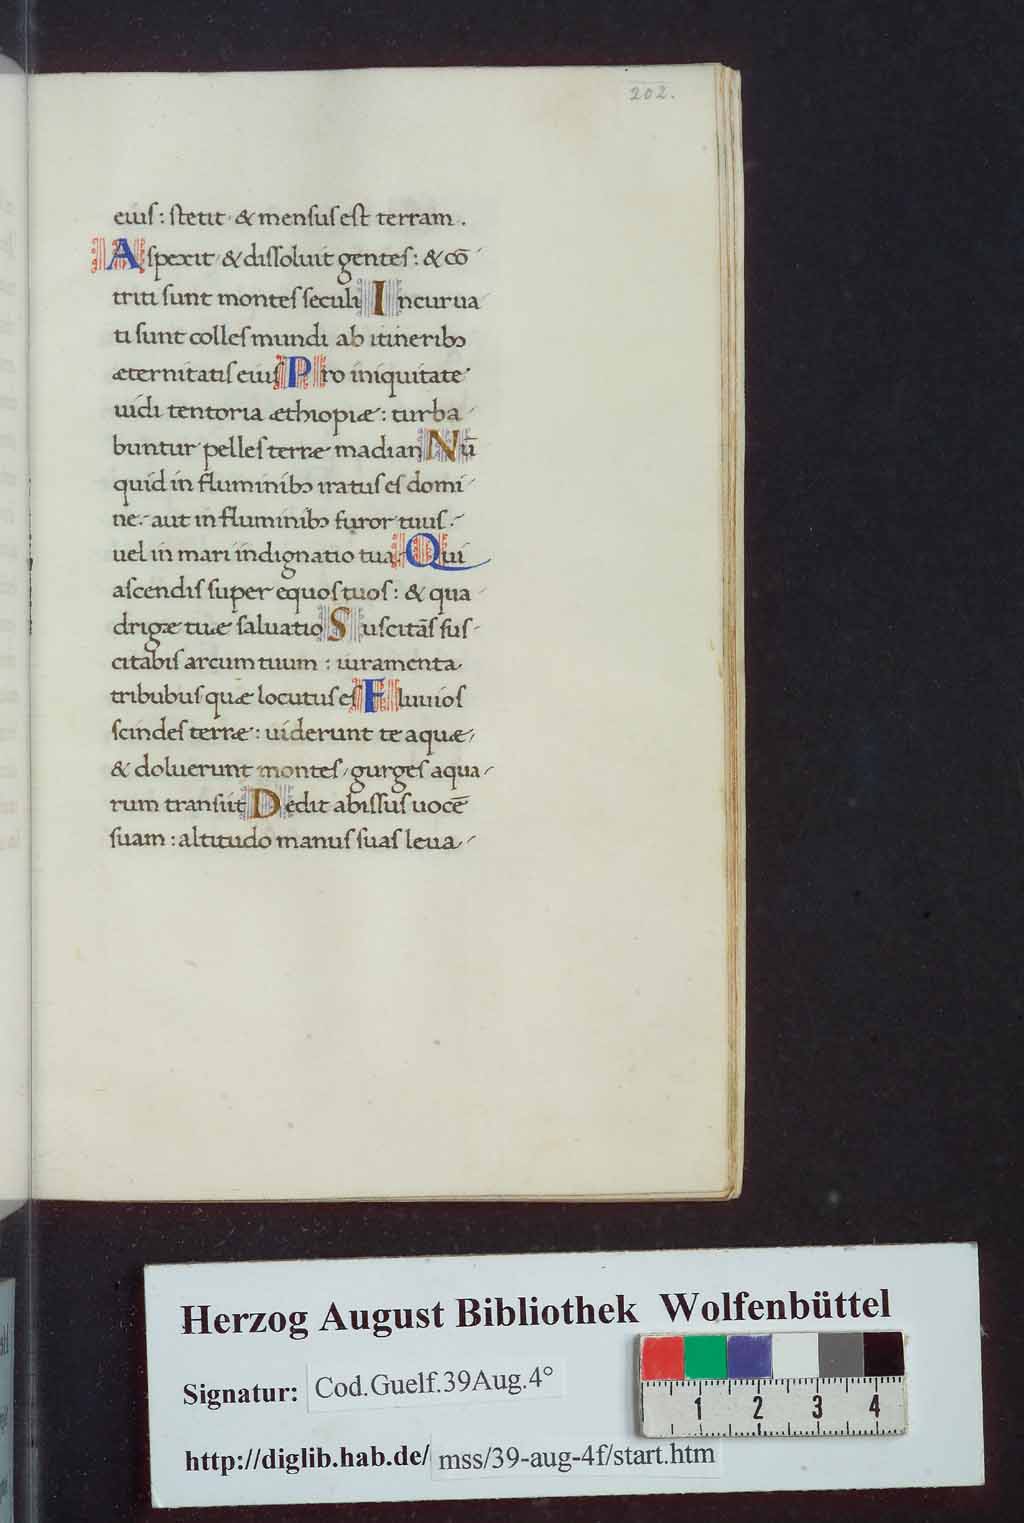 202.
eiuſ: ſtetit & menſuſ eſt terram.
Aſpexit & diſſoluit genteſ: & cō
triti ſunt monteſ ſeculi Incurua
ti ſunt colleſ mundi ab itineribꝫ
æternitatiſ eiuſ Pro iniquitate
uidi tentoria æthiopiæ: turba
buntur pelleſ terræ madian Nū
quid in fluminibꝫ iratuſ eſ domi
ne: aut in fluminibꝫ furor tuuſ:
uel in mari indignatio tua: Qui
aſcendiſ ſuper equoſ tuoſ: & qua
drigæ tuæ ſaluatio Suſcitāſ ſuſ
citabiſ arcum tuum: iuramenta
tribubuſ quæ locutuſ eſ Fluuioſ
ſcindeſ terræ: uiderunt te aquæ,
& doluerunt monteſ, gurgeſ aqua
rum tranſiit Dedit abiſſuſ uocē
ſuam: altitudo manuſ ſuaſ leua
Herzog August Bibliothek Wolfenbüttel
Signatur: Cod.Guelf.39Aug.4°
1 2 3 4
http://diglib.hab.de/ mss/39-aug-4f/start.htm